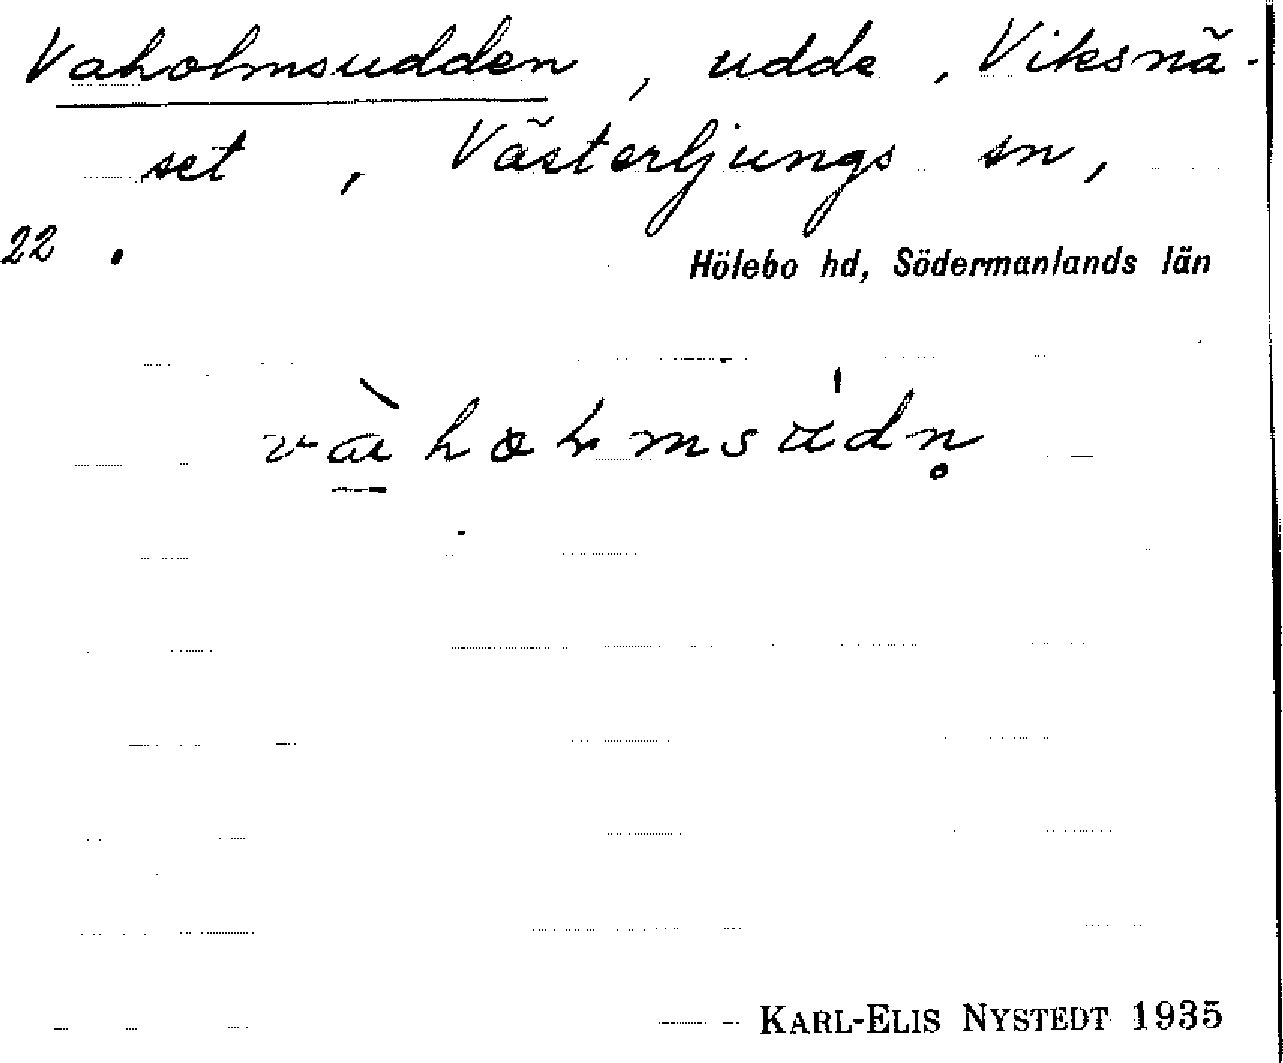 Vaholmsudden, udde, Viksnä-
set, Västerljungs sn,
22.
Hölebo hd, Södermanlands län
KARL-ELIS NYSTEDT 1935